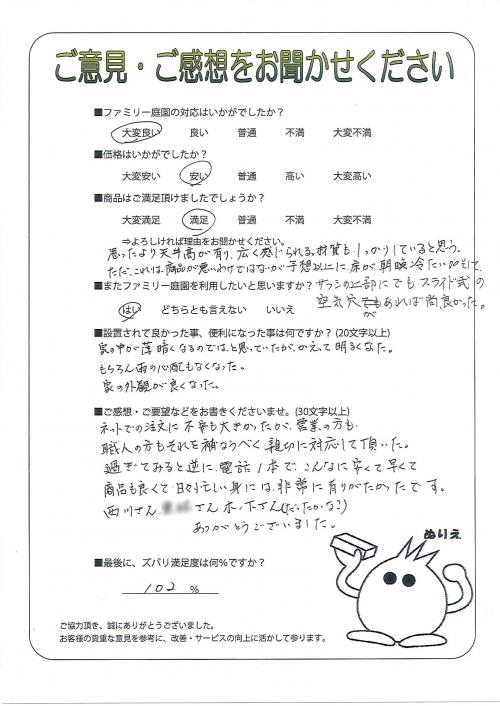 ご意見・ご感想をお聞かせください
■ファミリー庭園の対応はいかがでしたか？
大変良い 良い 普通 不満 大変不満
■価格はいかがでしたか？
大変安い 安い 普通 高い 大変高い
■商品はご満足頂けましたでしょうか？
大変満足 満足 普通 不満 大変不満
⇒よろしければ理由をお聞かせください。
思ったより天井高が有り、広く感じられる。材質もしっかりしていると思う。
ただ、これは、商品が悪いわけではないが予想以上に、床が朝晩冷たい
サッシの上部にでもスライド式の
空気穴でもあれば尚良かった。
が
■またファミリー庭園を利用したいと思いますか？
はい どちらとも言えない いいえ
■設置されて良かった事、便利になった事は何ですか？(20文字以上)
家の中が薄暗くなるのでは、と思っていたが、かえって明るくなった。
もちろん雨の心配もなくなった。
家の外観が良くなった。
■ご感想・ご要望などをお書きくださいませ。(30文字以上)
ネットでの注文に不安も大きかったが、営業の方も
職人の方もそれを補なうべく親切に対応して頂いた。
過ぎてみると逆に、電話1本で、こんなに安くて早くて
商品も良くて、日々忙しい身には、非常に有りがたかったです。
西川さん、 さん 木ノ下さん(だったかな?)
ありがとうございました。
ぬりえ
■最後に、ズバリ満足度は何%ですか？
102 %
ご協力頂き、誠にありがとうございました。
お客様の貴重な意見を参考に、改善・サービスの向上に活かして参ります。